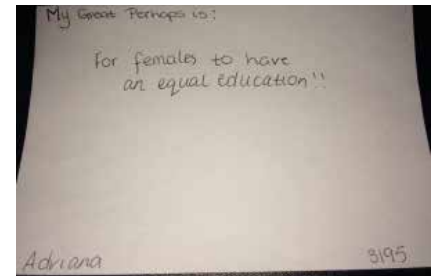 My Great Perhaps is:
For females to have
an equal education!!
Adriana 3195